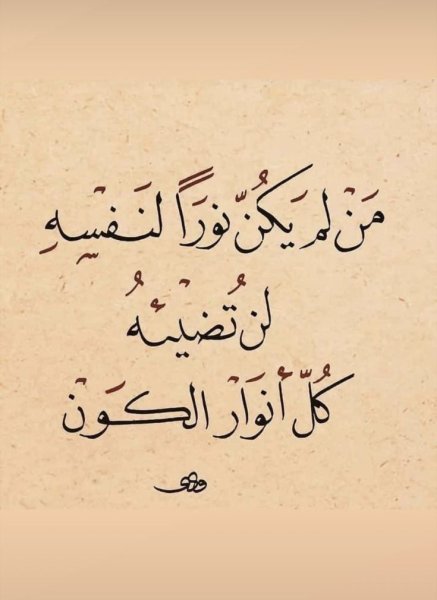 مَنْ لم يَكُنّ نورَاً لنَفسِهِ
لن تُضيْئهُ
كُلّ أنوَارْ الكَونْ
وهبى